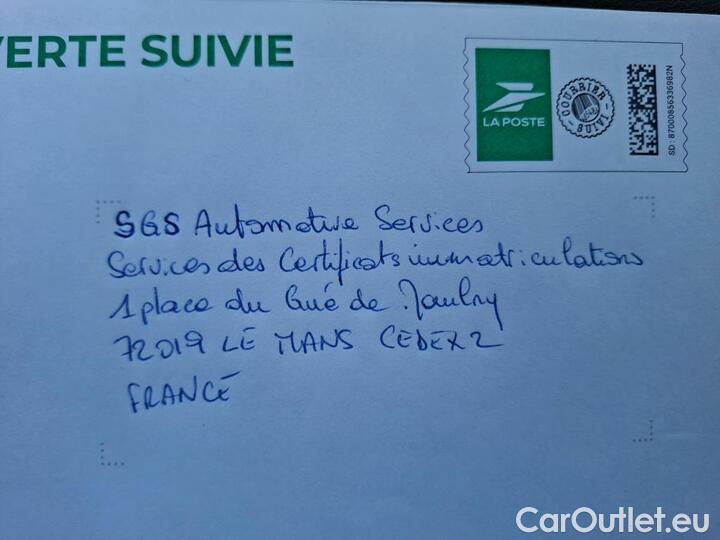 VERTE SUIVIE
LA POSTE
COURRIER
SUIVI
SD: 87000856336982N
SGS Automotive Services
Services des Certificats immatriculations
1 place du Gué de Maulny
72019 LE MANS CEDEX 2
FRANCE
CarOutlet.eu